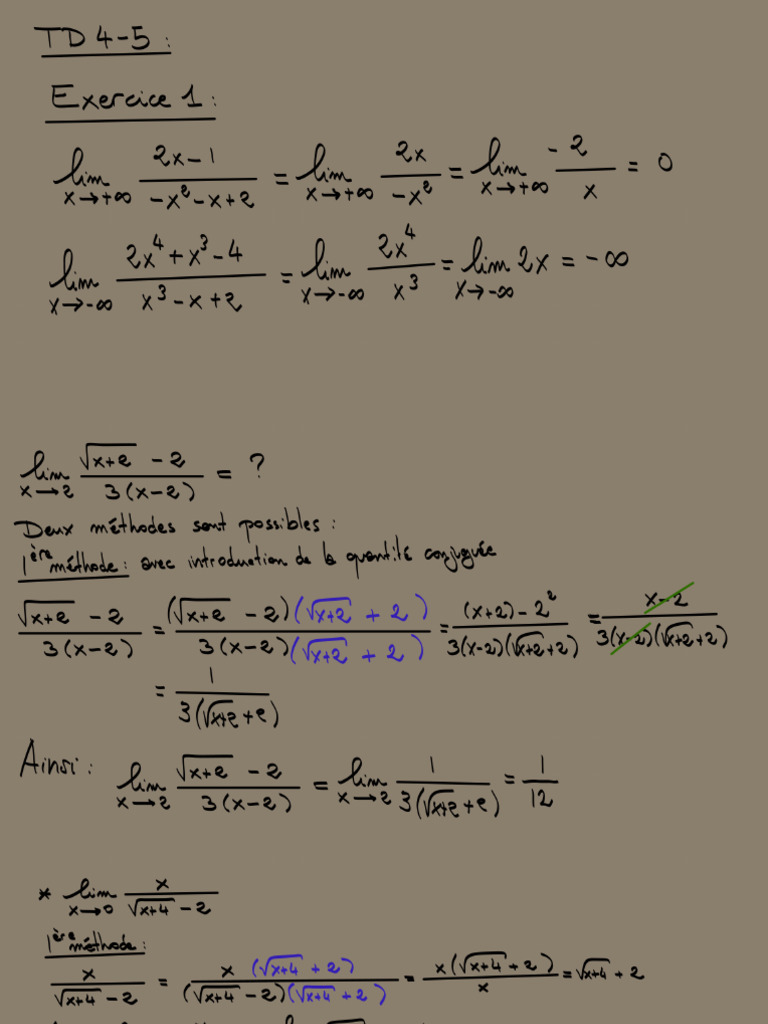 TD 4-5 :
Exercice 1 :
lim_{x→+∞} (2x-1)/(-x²-x+2) = lim_{x→+∞} 2x/(-x²) = lim_{x→+∞} -2/x = 0
lim_{x→-∞} (2x⁴+x³-4)/(x³-x+2) = lim_{x→-∞} 2x⁴/x³ = lim_{x→-∞} 2x = -∞
lim_{x→2} (√(x+2) - 2)/(3(x-2)) = ?
Deux méthodes sont possibles :
1ère méthode : avec introduction de la quantité conjuguée
(√(x+2) - 2)/(3(x-2)) = ((√(x+2) - 2)(√(x+2) + 2))/(3(x-2)(√(x+2) + 2)) = ((x+2) - 2²)/(3(x-2)(√(x+2)+2)) = (x-2)/(3(x-2)(√(x+2)+2))
= 1/(3(√(x+2)+2))
Ainsi : lim_{x→2} (√(x+2) - 2)/(3(x-2)) = lim_{x→2} 1/(3(√(x+2)+2)) = 1/12
* lim_{x→0} x/(√(x+4) - 2)
1ère méthode :
x/(√(x+4) - 2) = (x (√(x+4) + 2))/((√(x+4) - 2)(√(x+4) + 2)) = (x(√(x+4) + 2))/x = √(x+4) + 2